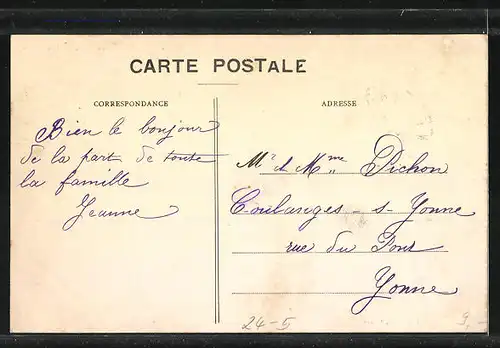 CARTE POSTALE
CORRESPONDANCE
Bien le bonjour
de la part de toute
la famille
Jeanne
ADRESSE
Mr et Mme Pichon
Coulanges-s-Yonne
rue du Pont
Yonne
24-5
9,-